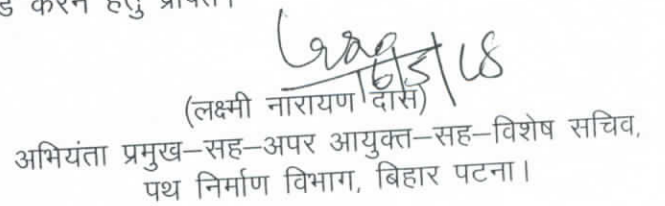 ड करने हेतु प्रेषित।
16/5/18
(लक्ष्मी नारायण दास)
अभियंता प्रमुख–सह–अपर आयुक्त–सह–विशेष सचिव,
पथ निर्माण विभाग, बिहार पटना।